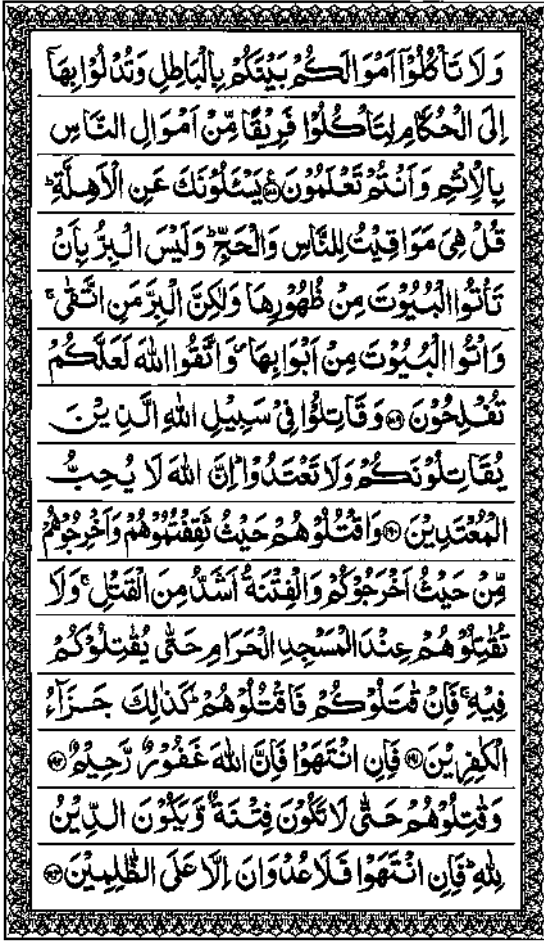 وَلَا تَاْكُلُوْۤا اَمْوَالَكُمْ بَيْنَكُمْ بِالْبَاطِلِ وَتُدْلُوْا بِهَاۤ
اِلَى الْحُكَّامِ لِتَاْكُلُوْا فَرِيْقًا مِّنْ اَمْوَالِ النَّاسِ
بِالْاِثْمِ وَاَنْتُمْ تَعْلَمُوْنَ ﴿۱۸۸﴾ يَسْـَٔلُوْنَكَ عَنِ الْاَهِلَّةِ ؕ
قُلْ هِيَ مَوَاقِيْتُ لِلنَّاسِ وَالْحَجِّ ؕ وَلَيْسَ الْبِرُّ بِاَنْ
تَاْتُوا الْبُيُوْتَ مِنْ ظُهُوْرِهَا وَلٰكِنَّ الْبِرَّ مَنِ اتَّقٰى ۚ
وَاْتُوا الْبُيُوْتَ مِنْ اَبْوَابِهَا ۪ وَاتَّقُوا اللّٰهَ لَعَلَّكُمْ
تُفْلِحُوْنَ ﴿۱۸۹﴾ وَقَاتِلُوْا فِيْ سَبِيْلِ اللّٰهِ الَّذِيْنَ
يُقَاتِلُوْنَكُمْ وَلَا تَعْتَدُوْا ؕ اِنَّ اللّٰهَ لَا يُحِبُّ
الْمُعْتَدِيْنَ ﴿۱۹۰﴾ وَاقْتُلُوْهُمْ حَيْثُ ثَقِفْتُمُوْهُمْ وَاَخْرِجُوْهُمْ
مِّنْ حَيْثُ اَخْرَجُوْكُمْ وَالْفِتْنَةُ اَشَدُّ مِنَ الْقَتْلِ ۚ وَلَا
تُقٰتِلُوْهُمْ عِنْدَ الْمَسْجِدِ الْحَرَامِ حَتّٰى يُقٰتِلُوْكُمْ
فِيْهِ ۚ فَاِنْ قٰتَلُوْكُمْ فَاقْتُلُوْهُمْ ؕ كَذٰلِكَ جَزَآءُ
الْكٰفِرِيْنَ ﴿۱۹۱﴾ فَاِنِ انْتَهَوْا فَاِنَّ اللّٰهَ غَفُوْرٌ رَّحِيْمٌ ﴿۱۹۲﴾
وَقٰتِلُوْهُمْ حَتّٰى لَا تَكُوْنَ فِتْنَةٌ وَّيَكُوْنَ الدِّيْنُ
لِلّٰهِ ؕ فَاِنِ انْتَهَوْا فَلَا عُدْوَانَ اِلَّا عَلَى الظّٰلِمِيْنَ ﴿۱۹۳﴾